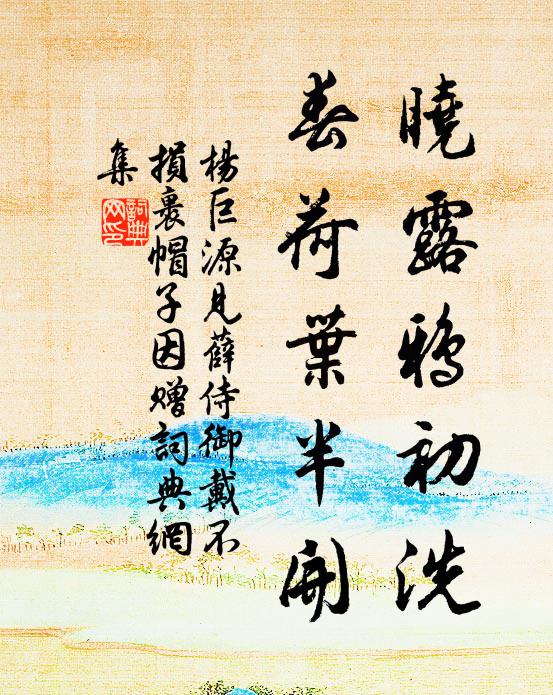 曉露鴉初洗
春荷葉半開
楊巨源見薛侍御戴不
損裹帽子因贈詞典網
集
詞典
网印